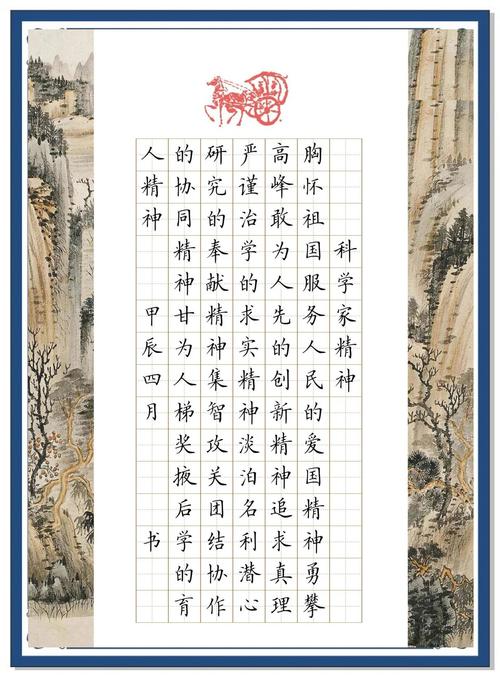 科学家精神
胸怀祖国服务人民的爱国精神勇攀
高峰敢为人先的创新精神追求真理
严谨治学的求实精神淡泊名利潜心
研究的奉献精神集智攻关团结协作
的协同精神甘为人梯奖掖后学的育
人精神 甲辰四月 书